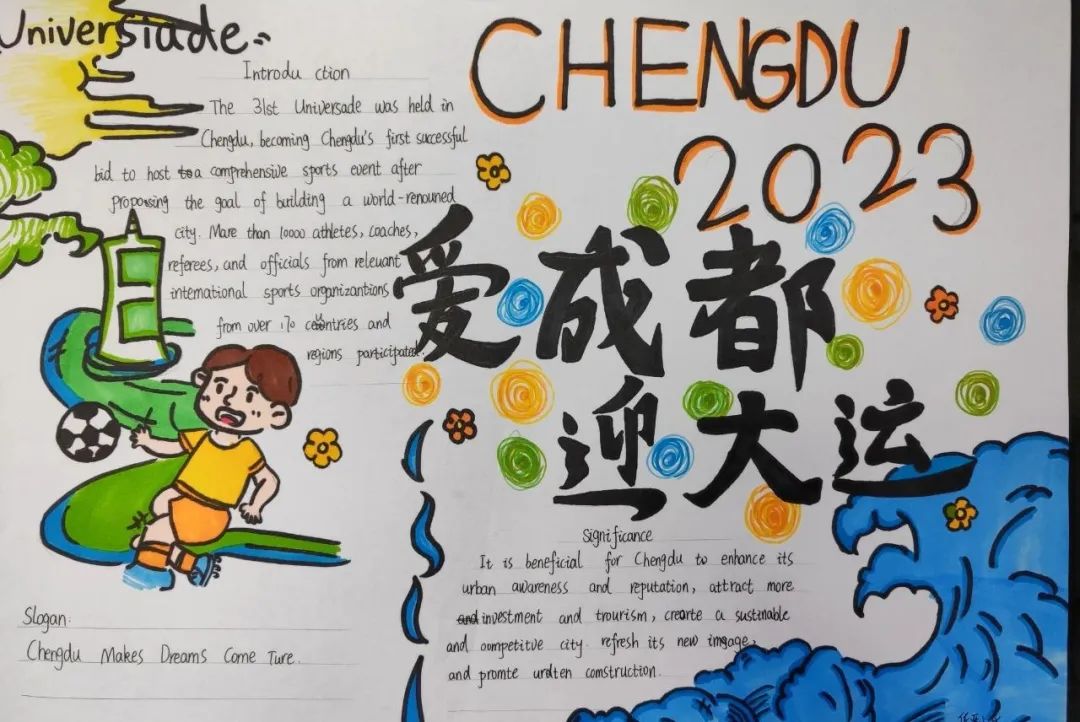 Universiade
CHENGDU
2023
Introdu ction
The 31st Universade was held in
Chengdu, becoming Chengdu's first successful
bid to host a comprehensive sports event after
proposing the goal of building a world-renouned
city. More than 10000 athletes, coaches,
referees, and officials from releuant
international sports organizantions
from over 170 countries and
regions participated.
爱成都
迎大运
Significance
It is beneficial for Chengdu to enhance its
urban awareness and reputation, attract more
and investment and trourism, crearte a sustinable
and oompetitive city. refresh its new imgage,
and promte urdten comstruction.
Slogan:
Chengdu Makes Dreams Come Ture.